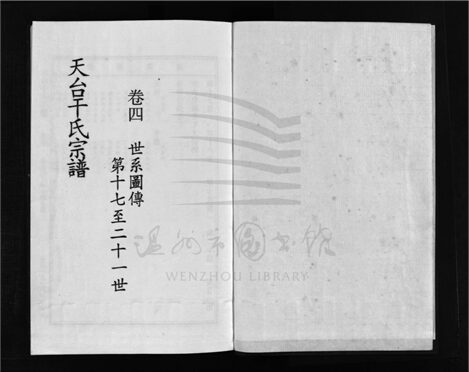 卷四 世系圖傳
第十七至二十一世
天台干氏宗譜
温州市图书馆
WENZHOU LIBRARY